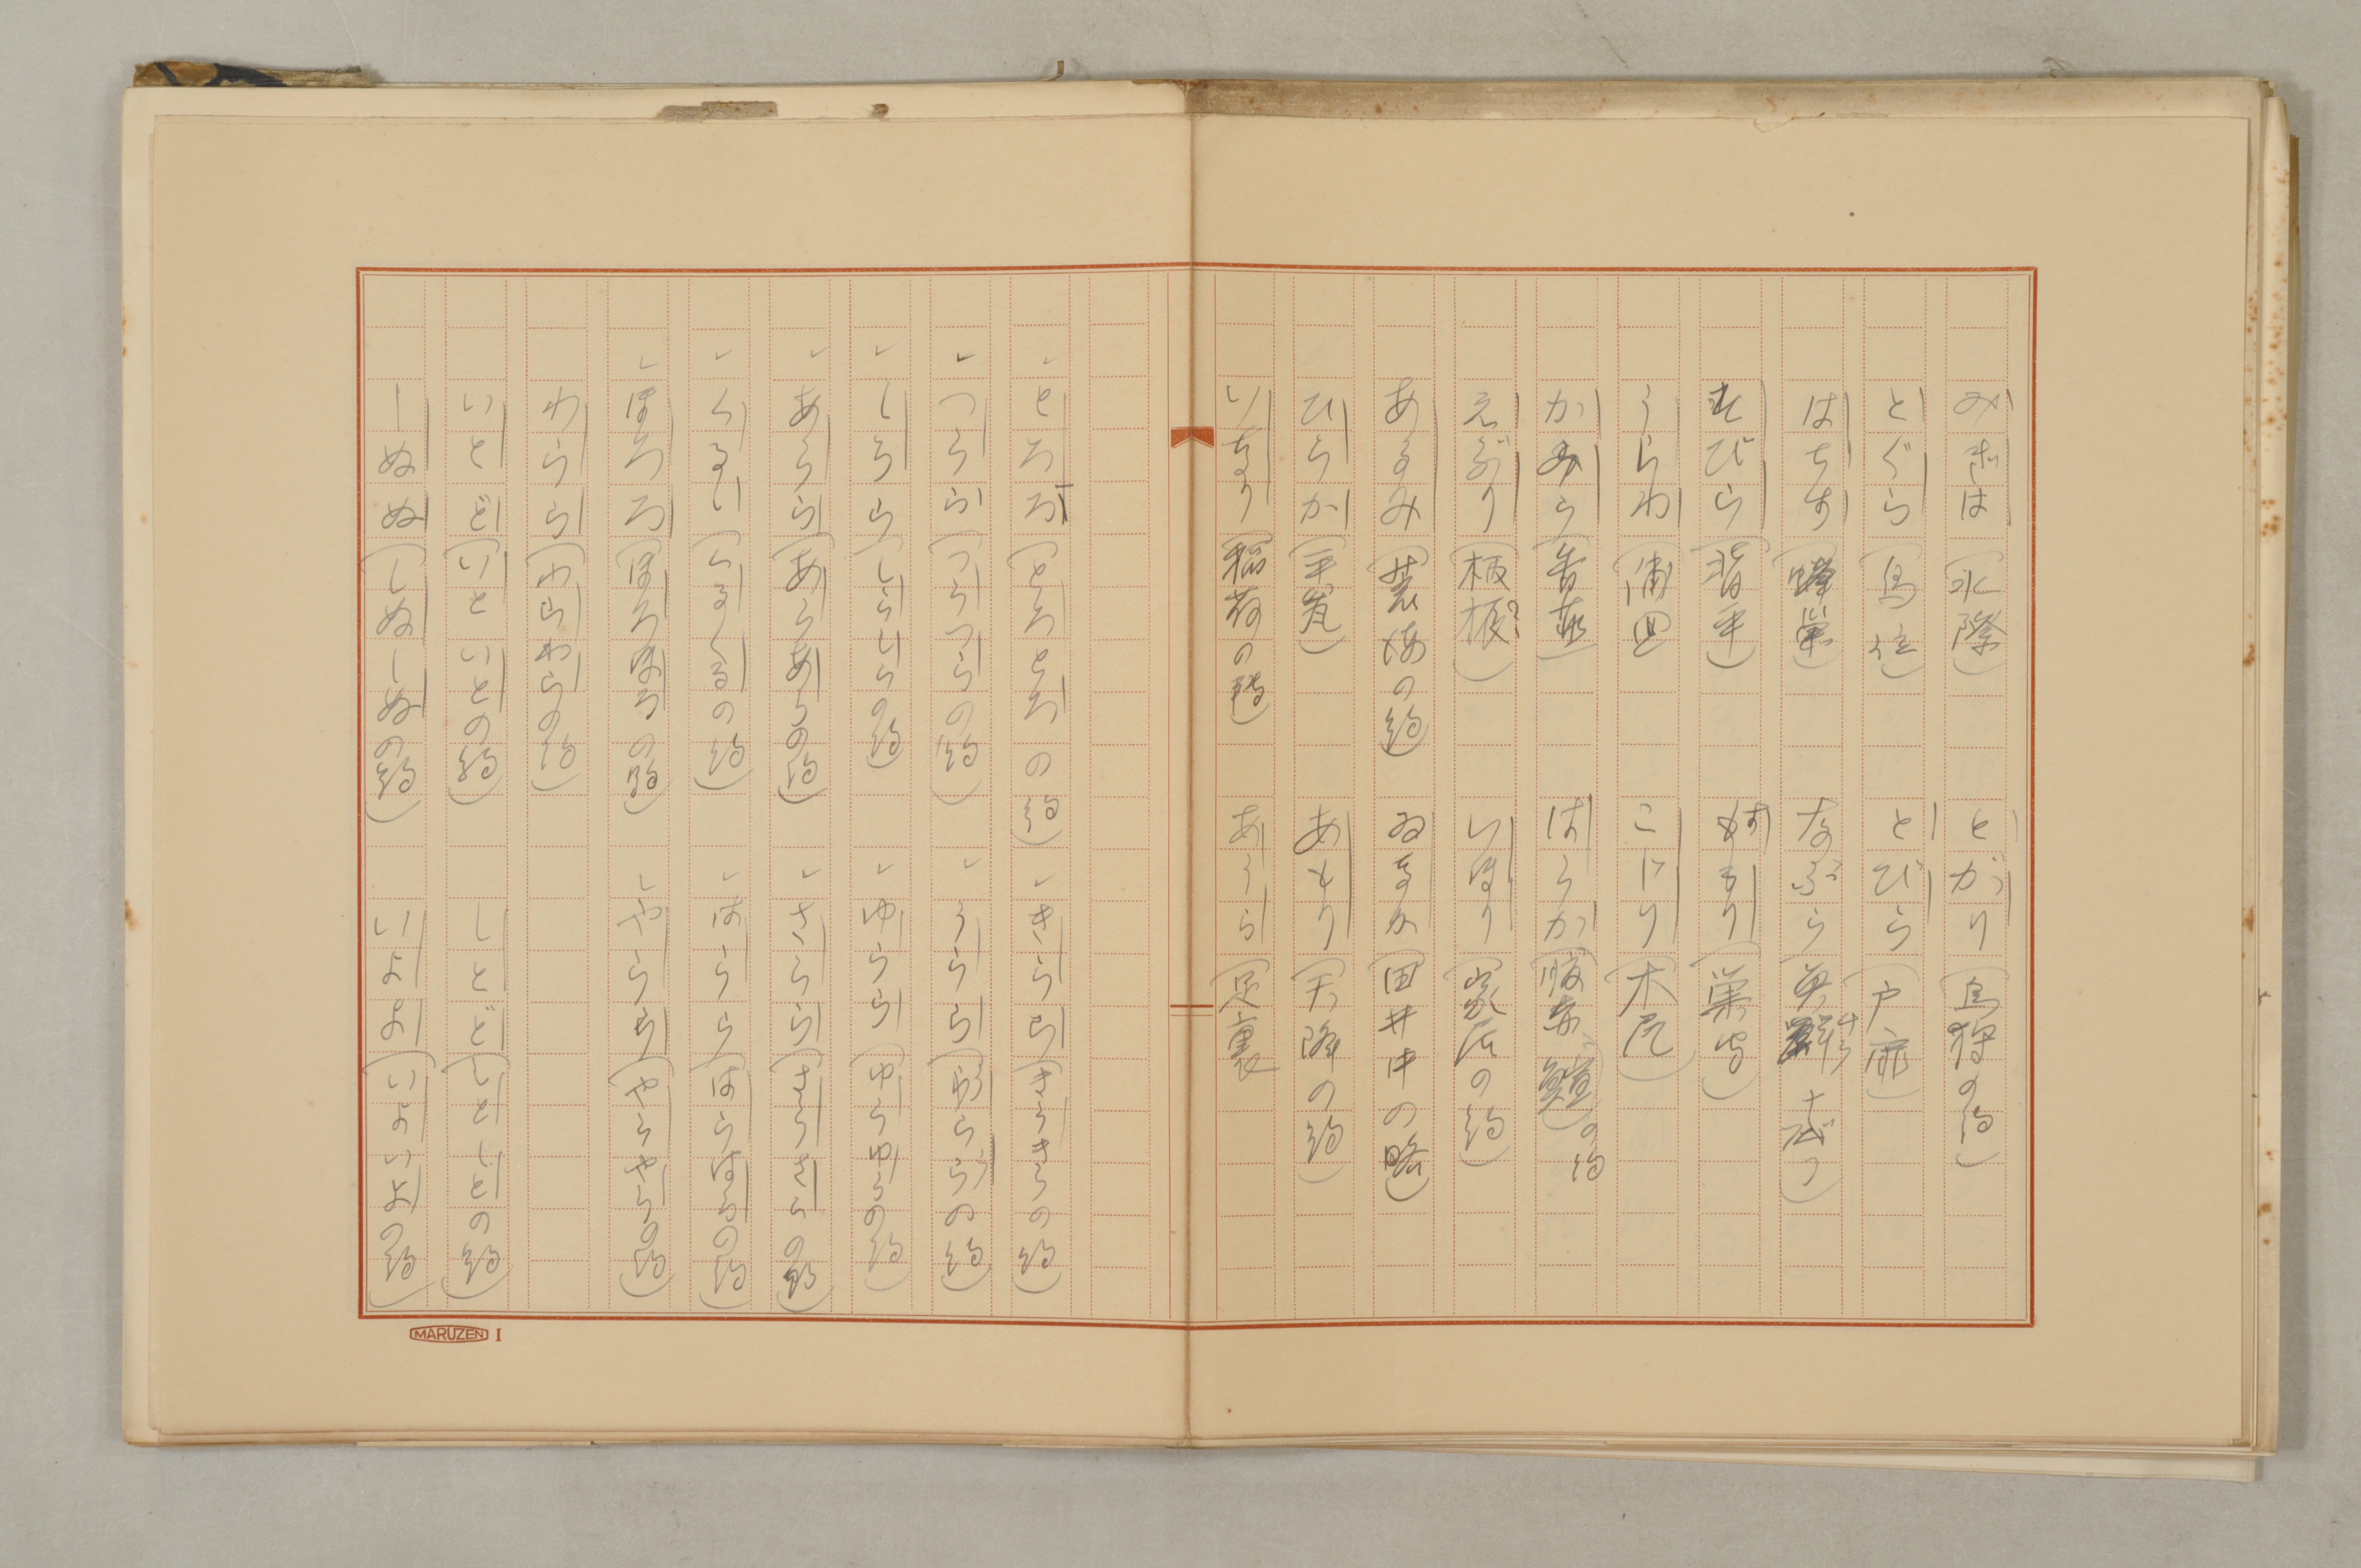 みぎは（水際）　とがり（鳥狩の約）
とぐら（鳥座）　とびら（戸扉）
はちす（蜂巣）　なぶら
そびら（背平）　すもり（巣守）
うらわ（浦回）　こじり（木尻）
かをり（香　はらか（腹赤　の約
えぶり（柄板？）　いほり（家居の約）
あるみ（荒海の約）　ゐなか（田井中の略）
ひらか（平瓮）　あもり（天降の約）
いなり（稲荷の　あうら（足裏
とろろ（とろとろの約）　きらら（きらきらの約）
つらら（つらつらの約）　うらら（うらうらの約）
しらら（しらしらの約）　ゆらら（ゆらゆらの約）
あらら（あらあらの約）　さらら（さらさらの約）
くるる（くるくるの約）　はらら（はらはらの約）
ほろろ（ほろほろの約）　やらら（やらやらの約）
わらら（わらわらの約）
いとど（いといとの約）　しとど（しとしとの約）
しぬぬ（しぬしぬの約）　いよよ（いよいよの約）
MARUZEN I